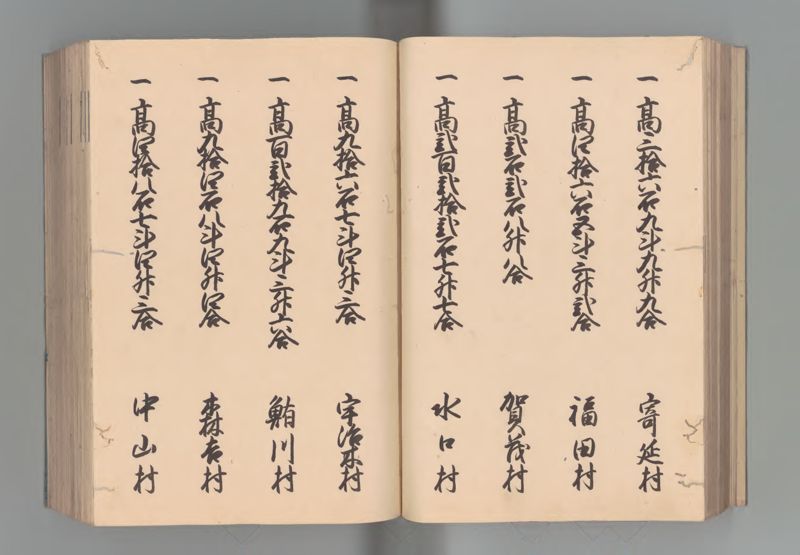 一 高三拾六石九斗九升九合 寄延村
一 高四拾六石五斗三升弐合 福田村
一 高弐石弐石八升八合 賀茂村
一 高弐百弐拾弐石七升七合 水口村
一 高九拾六石七斗四升三合 宇治木村
一 高百弐拾九石九斗三升六合 鮎川村
一 高九拾四石八斗四升四合 森吉村
一 高四拾八石七斗四升三合 中山村